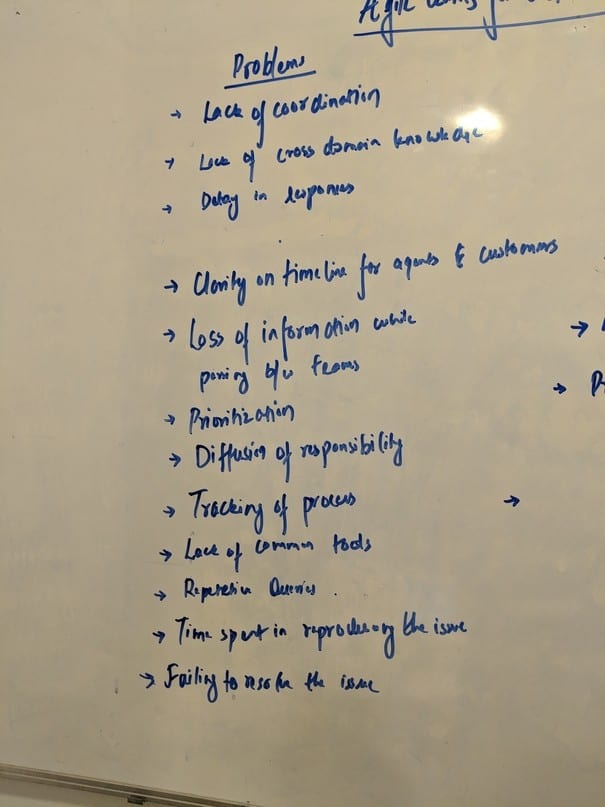 Agile
Problems
→ Lack of coordination
→ Lack of cross domain knowledge
→ Delay in responses
→ Clarity on timeline for agents & customers
→ Loss of information while
passing b/w teams
→ Prioritization
→ Diffusion of responsibility
→ Tracking of process
→ Lack of common tools
→ Repetative Queries.
→ Time spent in reproducing the issue
→ Failing to resolve the issue